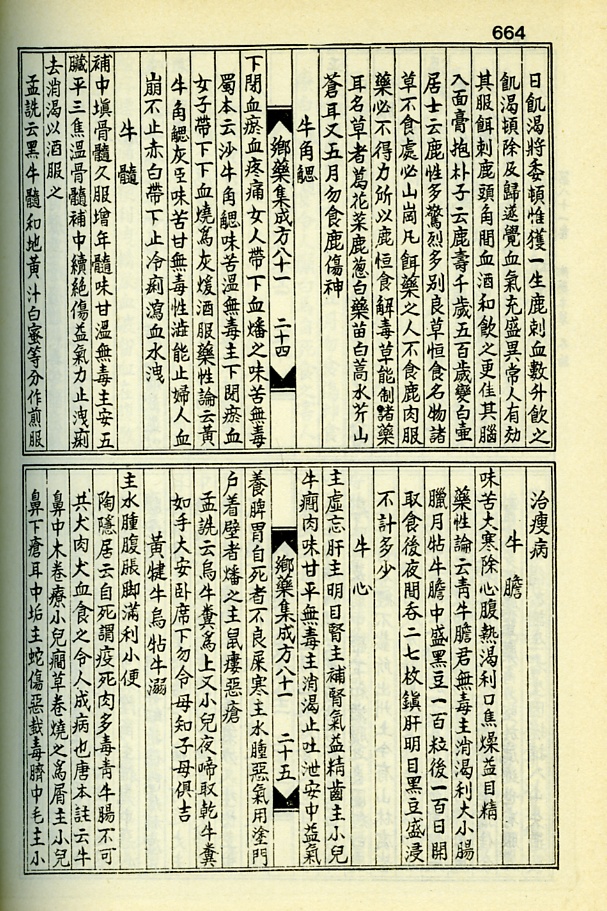 664
日飢渴將委頓惟獲一生鹿刺血數升飮之
飢渴頓除及歸遂覺血氣充盛異常人有効
其服餌刺鹿頭角間血酒和飮之更佳其腦
入面膏抱朴子云鹿壽千歲五百歲變白壷
居士云鹿性多驚烈多别良草恒食名物諸
草不食處必山崗凡餌藥之人不食鹿肉服
藥必不得力所以鹿恒食解毒草能制諸藥
耳名草者葛花菜鹿葱白藥苗白蒿水芹山
蒼耳又五月勿食鹿傷神
牛角䚡
鄕藥集成方八十一　二十四
下閉血瘀血疼痛女人帶下血燔之味苦無毒
蜀本云沙牛角䚡味苦溫無毒主下閉瘀血
女子帶下下血燒爲灰煖酒服藥性論云黃
牛角䚡灰臣味苦甘無毒性澁能止婦人血
崩不止赤白帶下止冷痢瀉血水洩
牛髓
補中塡骨髓久服增年髓味甘溫無毒主安五
臟平三焦溫骨髓補中續絶傷益氣力止洩痢
去消渴以酒服之
孟詵云黑牛髓和地黃汁白蜜等分作煎服
治瘦病
牛膽
味苦大寒除心腹熱渴利口焦燥益目精
藥性論云靑牛膽君無毒主消渴利大小腸
臘月牯牛膽中盛黑豆一百粒後一百日開
取食後夜間呑二七枚鎭肝明目黑豆盛浸
不計多少
牛心
主虛忘肝主明目腎主補腎氣益精齒主小兒
牛癎肉味甘平無毒主消渴止吐泄安中益氣
鄕藥集成方八十一　二十五
養脾胃自死者不良屎寒主水腫惡氣用塗門
戶着壁者燔之主鼠瘻惡瘡
孟詵云烏牛糞爲上又小兒夜啼取乾牛糞
如手大安卧席下勿令母知子母俱吉
黃犍牛烏牯牛溺
主水腫腹脹脚滿利小便
陶隱居云自死謂疫死肉多毒靑牛腸不可
共犬肉犬血食之令人成病也唐本註云牛
鼻中木卷療小兒癎草卷燒之爲屑主小兒
鼻下瘡耳中垢主蛇傷惡䖧毒臍中毛主小